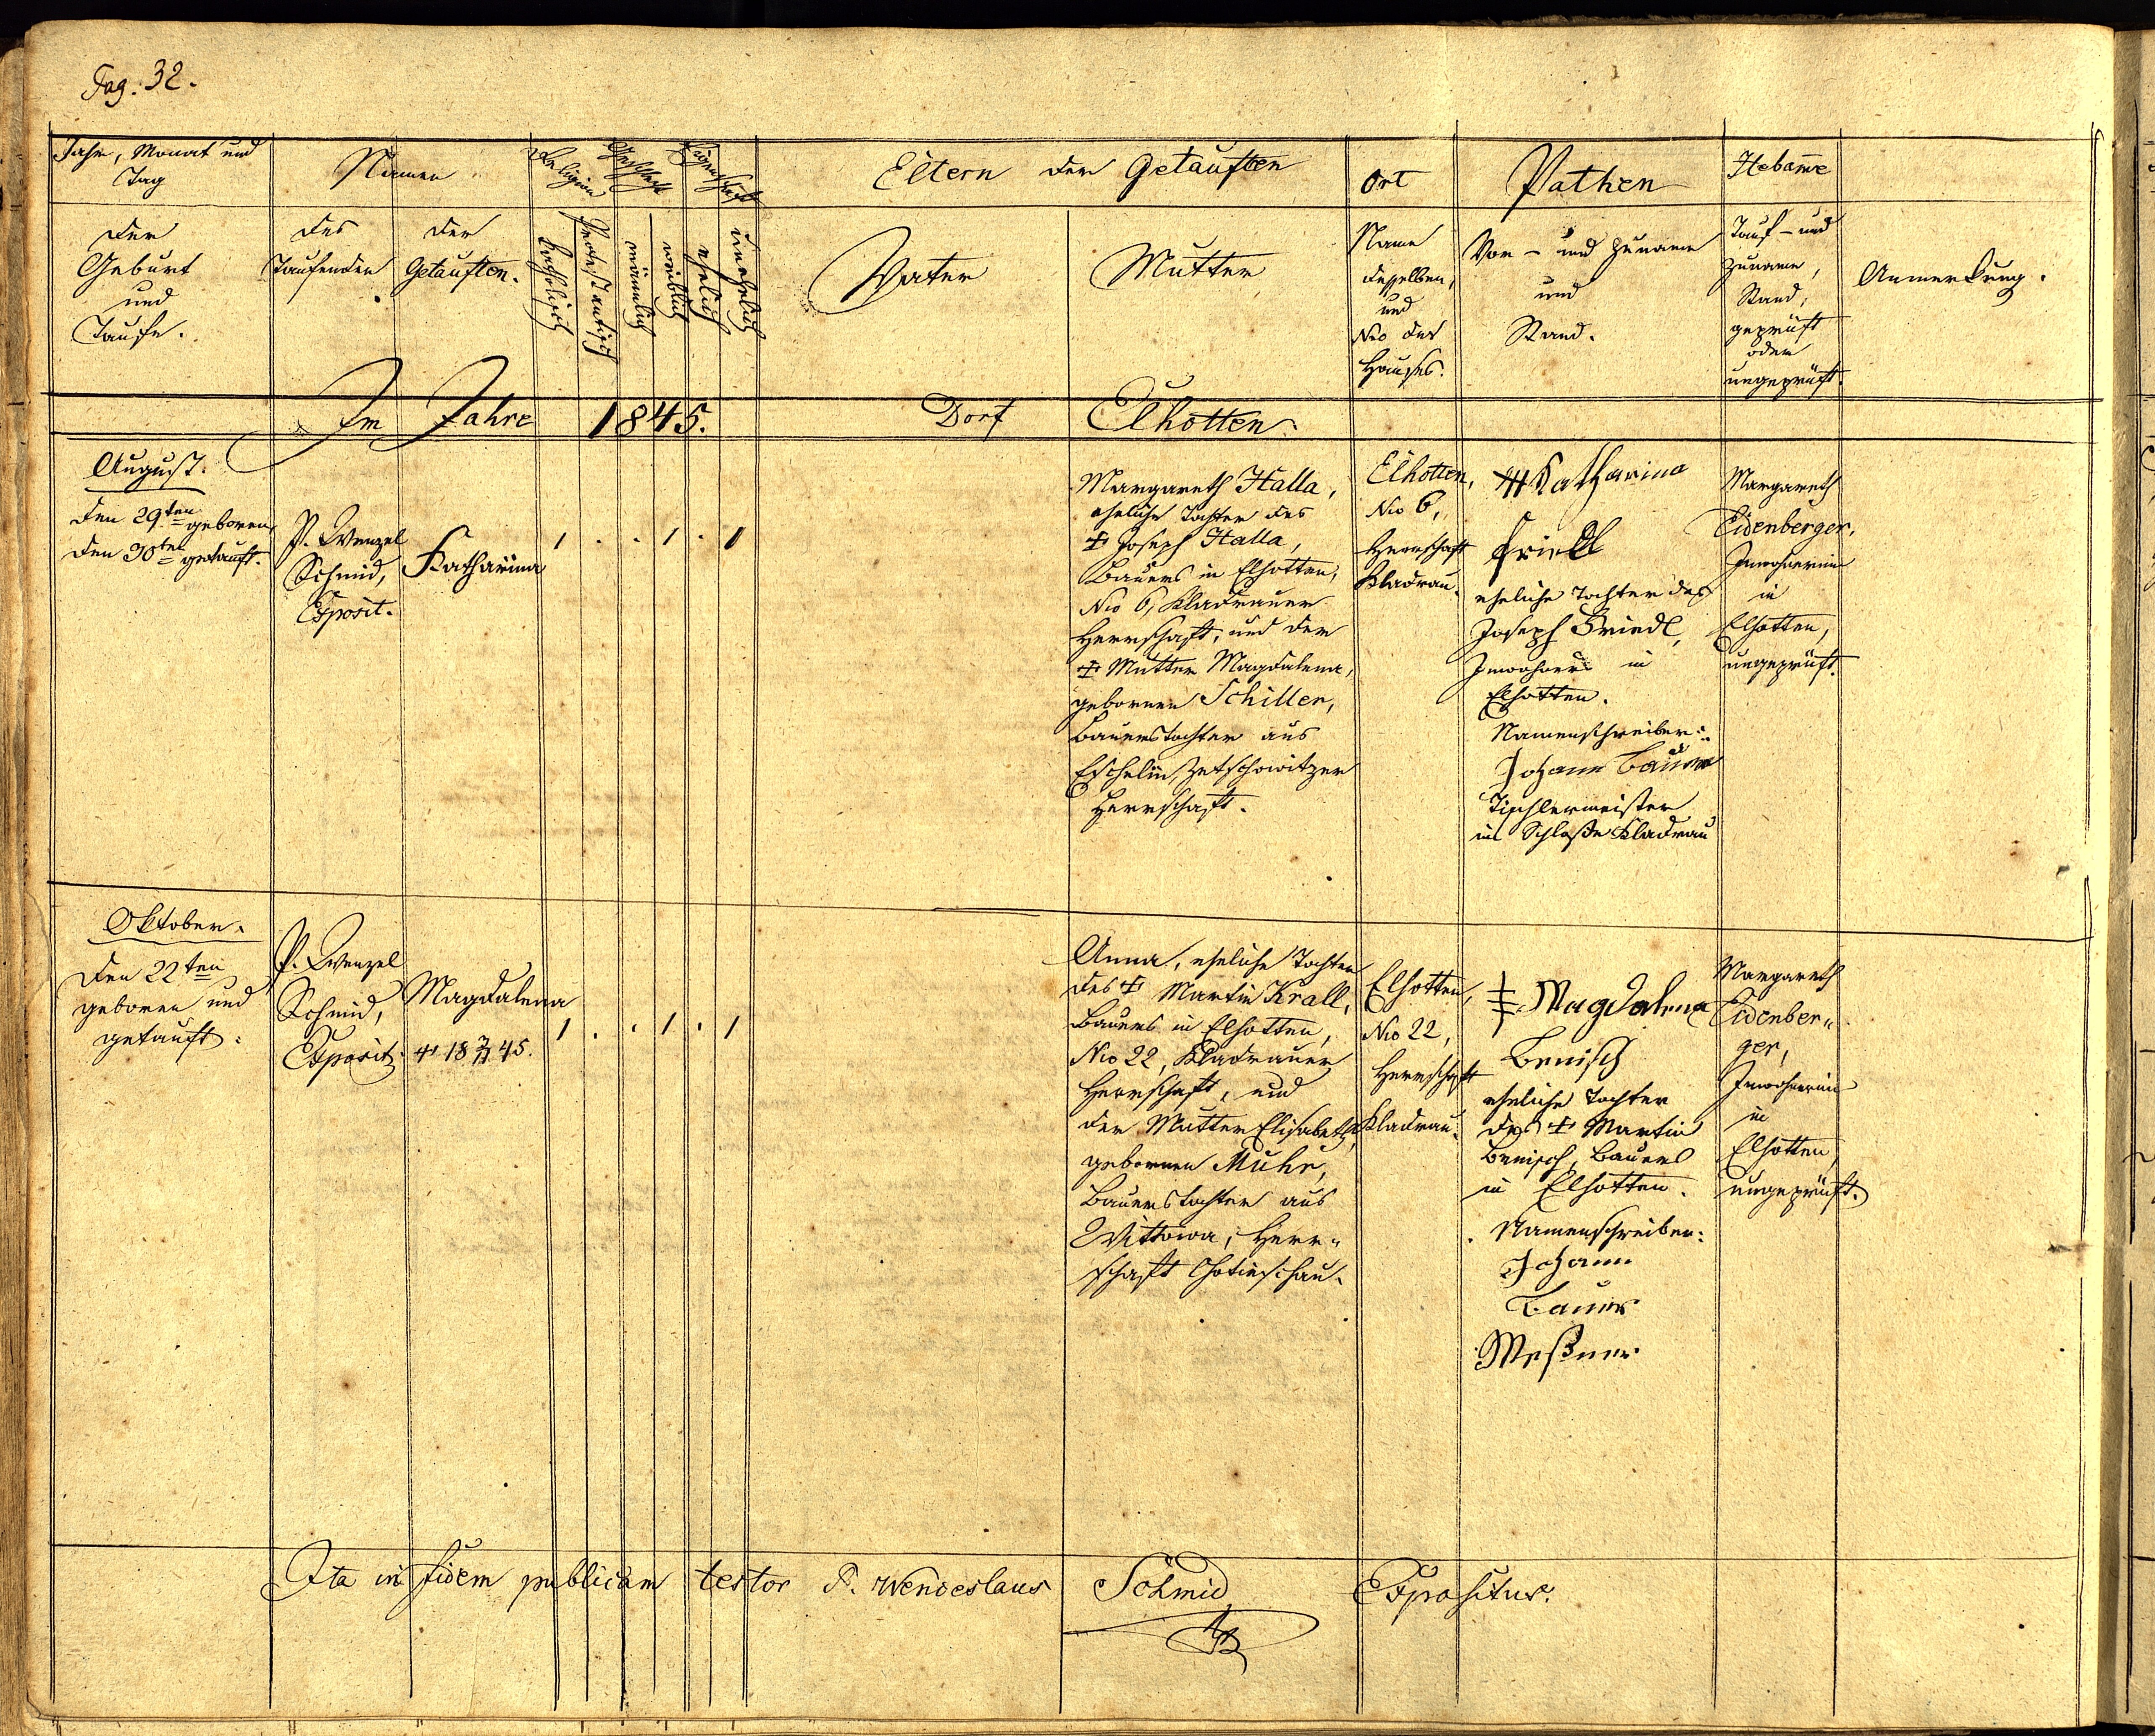 Pag. 32.
Jahr, Monat und
Tag
der
Geburt
und
Taufe.
Namen
des
Taufenden
der
Getauften.
Religion
katholisch
Protestantisch
Geschlecht
männlich
weiblich
Eigenschaft
ehelich
unehelich
Eltern der Getauften
Vater
Mutter
Ort
Name
desselben,
und
Nro des
Hauses.
Pathen
Vor- und Zuname
und
Stand.
Hebame
Tauf- und
Zuname,
Stand,
geprüft
oder
ungeprüft.
Anmerkung.
Im Jahre 1845. Dorf Elhotten.
August.
den 29ten geboren,
den 30ten getauft.
P. Wenzel
Schmid,
Exposit.
Katharina
1 . . 1 . 1
Margareth Halla,
eheliche Tochter des
† Joseph Halla,
Bauers in Elhotten,
Nro 6, Kladrauer
Herrschaft, und der
† Mutter Magdalena,
geborenen Schiller,
Bauerstochter aus
Eschelin, Zetschowitzer
Herrschaft.
Elhotten,
Nro 6,
Herrschaft
Kladrau.
††† Katharina
Friedl
eheliche Tochter des
Joseph Briedl,
Inwohners in
Elhotten.
Namenschreiber:
Johann Bauer
Tischlermeister
im Schloße Kladrau
Margareth
Eidenberger,
Inwohnerin
in
Elhotten,
ungeprüft.
Oktober.
den 22ten
geboren und
getauft.
P. Wenzel
Schmid,
Exposit.
Magdalena
† 18 7/11 45.
1 . . 1 . 1
Anna, eheliche Tochter
des † Martin Krall,
Bauers in Elhotten,
Nro 22, Kladrauer
Herrschaft, und
der Mutter Elisabeth,
gebornen Muhr,
Bauerstochter aus
Wittowa, Herr-
schaft Chotieschau.
Elhotten,
Nro 22,
Herrschaft
Kladrau.
††† Magdalena
Benisch
eheliche Tochter
des † Martin
Benisch, Bauers
in Elhotten.
Namenschreiber:
Johann
Bauer
Meßner
Margareth
Eidenber-
ger,
Inwohnerin
in
Elhotten,
ungeprüft.
Ita in fidem publicam testor P. Wenceslaus Schmid Expositus.